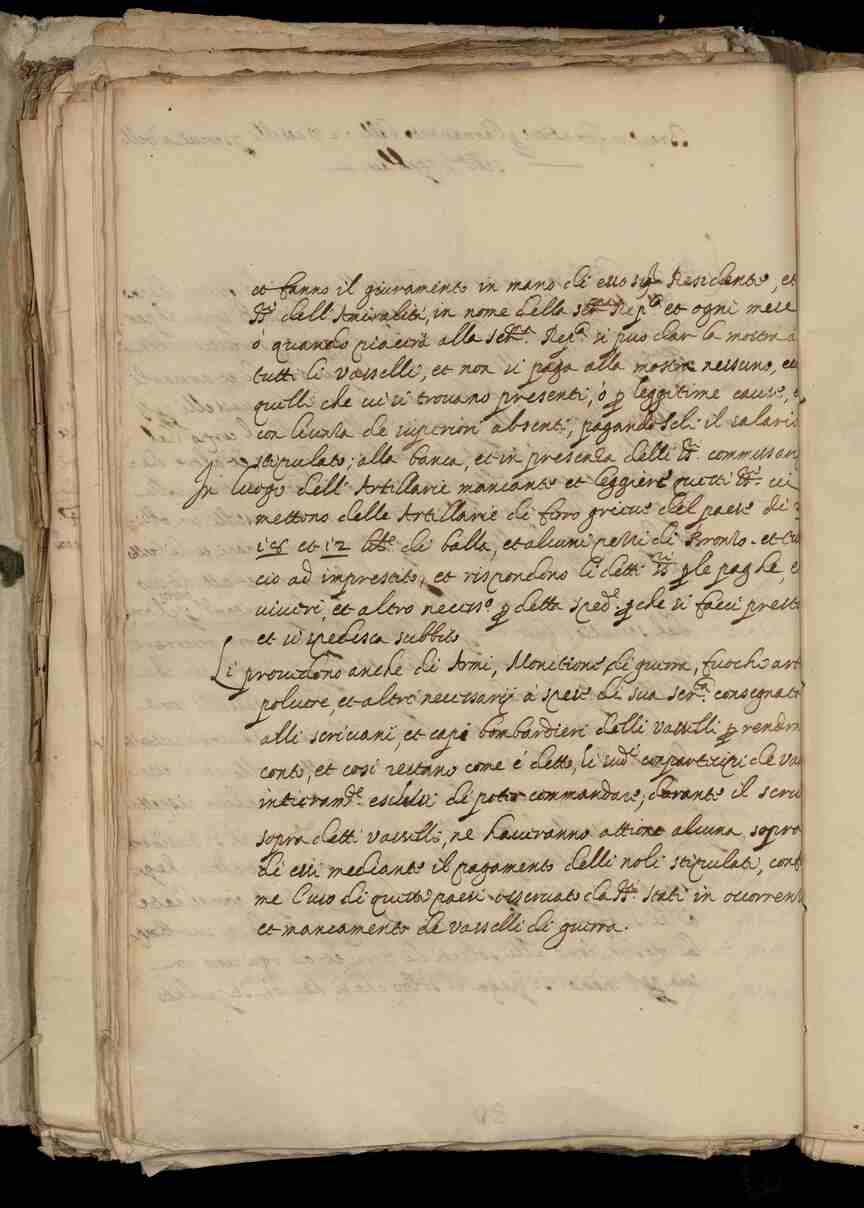 et fanno il giuramento in mano di esso sigr Residente, et
ss.ri dell'Amiralità, in nome della Ser.ma Rep.ca et ogni mese
ò quando piacerà alla Ser.ma Rep.ca si può dar la mostra a
tutti li vasselli, et non si paga alla mostra nessuno, 
quelli che ivi si trovano presenti, ò p leggitime cause,
con licenza de superiori absenti, pagandoseli il salario
stipulato, alla banca, et in presenza delli ss.ri commissari
In luogo dell'Artillarie mancante et leggiere questi ss.ri vi
mettono delle Artillarie di ferro del paese di
18 et 12 lbre di balla, et alcuni pezzi di Bronzo et
cio ad imprestito, et rispondono li detti ss.ri p le paghe, e
viveri, et altro necess.o p detta sped.e p che si facci presto
et si spedisca subbito
Li provedono anche di Armi, Monitione di guerra, fuochi art
polvere, et altri necessarij à spese di sua Ser.tà consegnato
alli scrivani, et capi bombardieri delli vasselli p render
conto, et così restano come é detto, li sud.i conpartecipi de vas
intieram.te esclusi di poter commandare, durante il servi
sopra detti vasselli, né haveranno attione alcuna, sopra
di essi mediante il pagamento delli noli stipulati, confor
me l'uso di questi paesi osservato da ss.ri stati in occorrenza
et mancamento de vasselli di guerra.